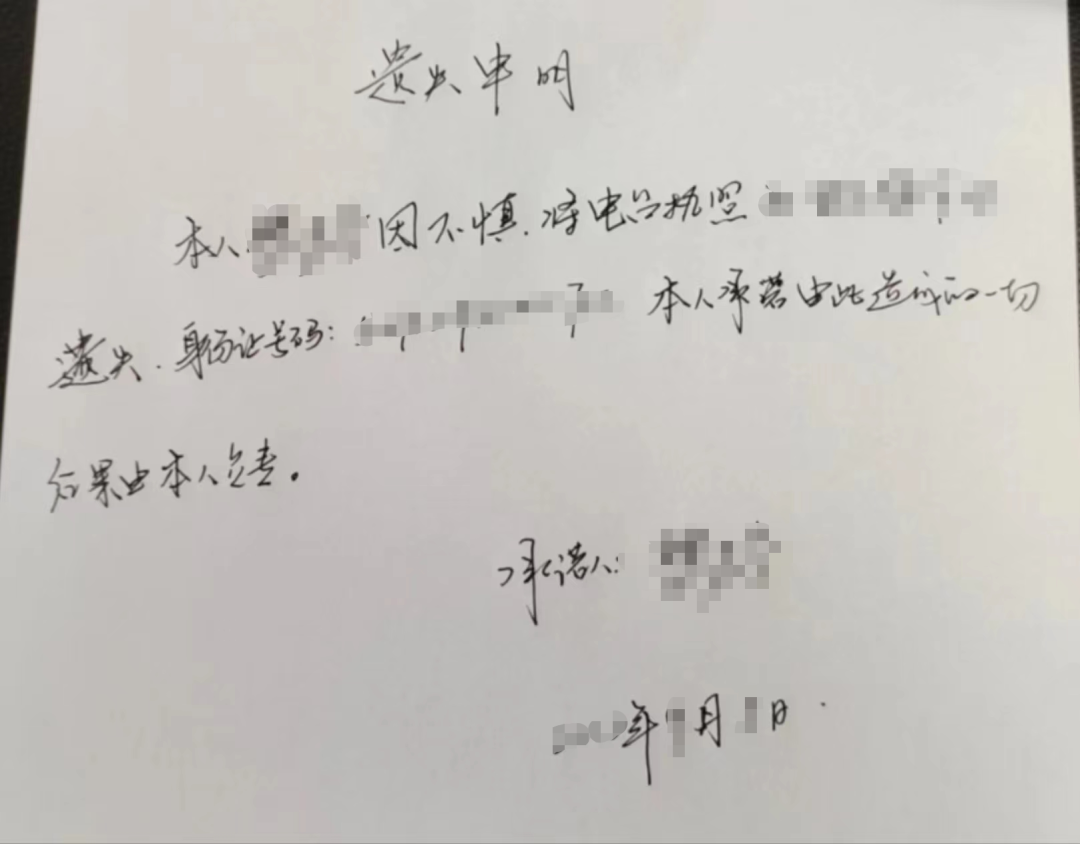 遗失申明
本人因不慎,将电台执照
遗失.身份证号码: 本人承诺由此造成的一切
后果由本人负责。
承诺人:
年 月 日.